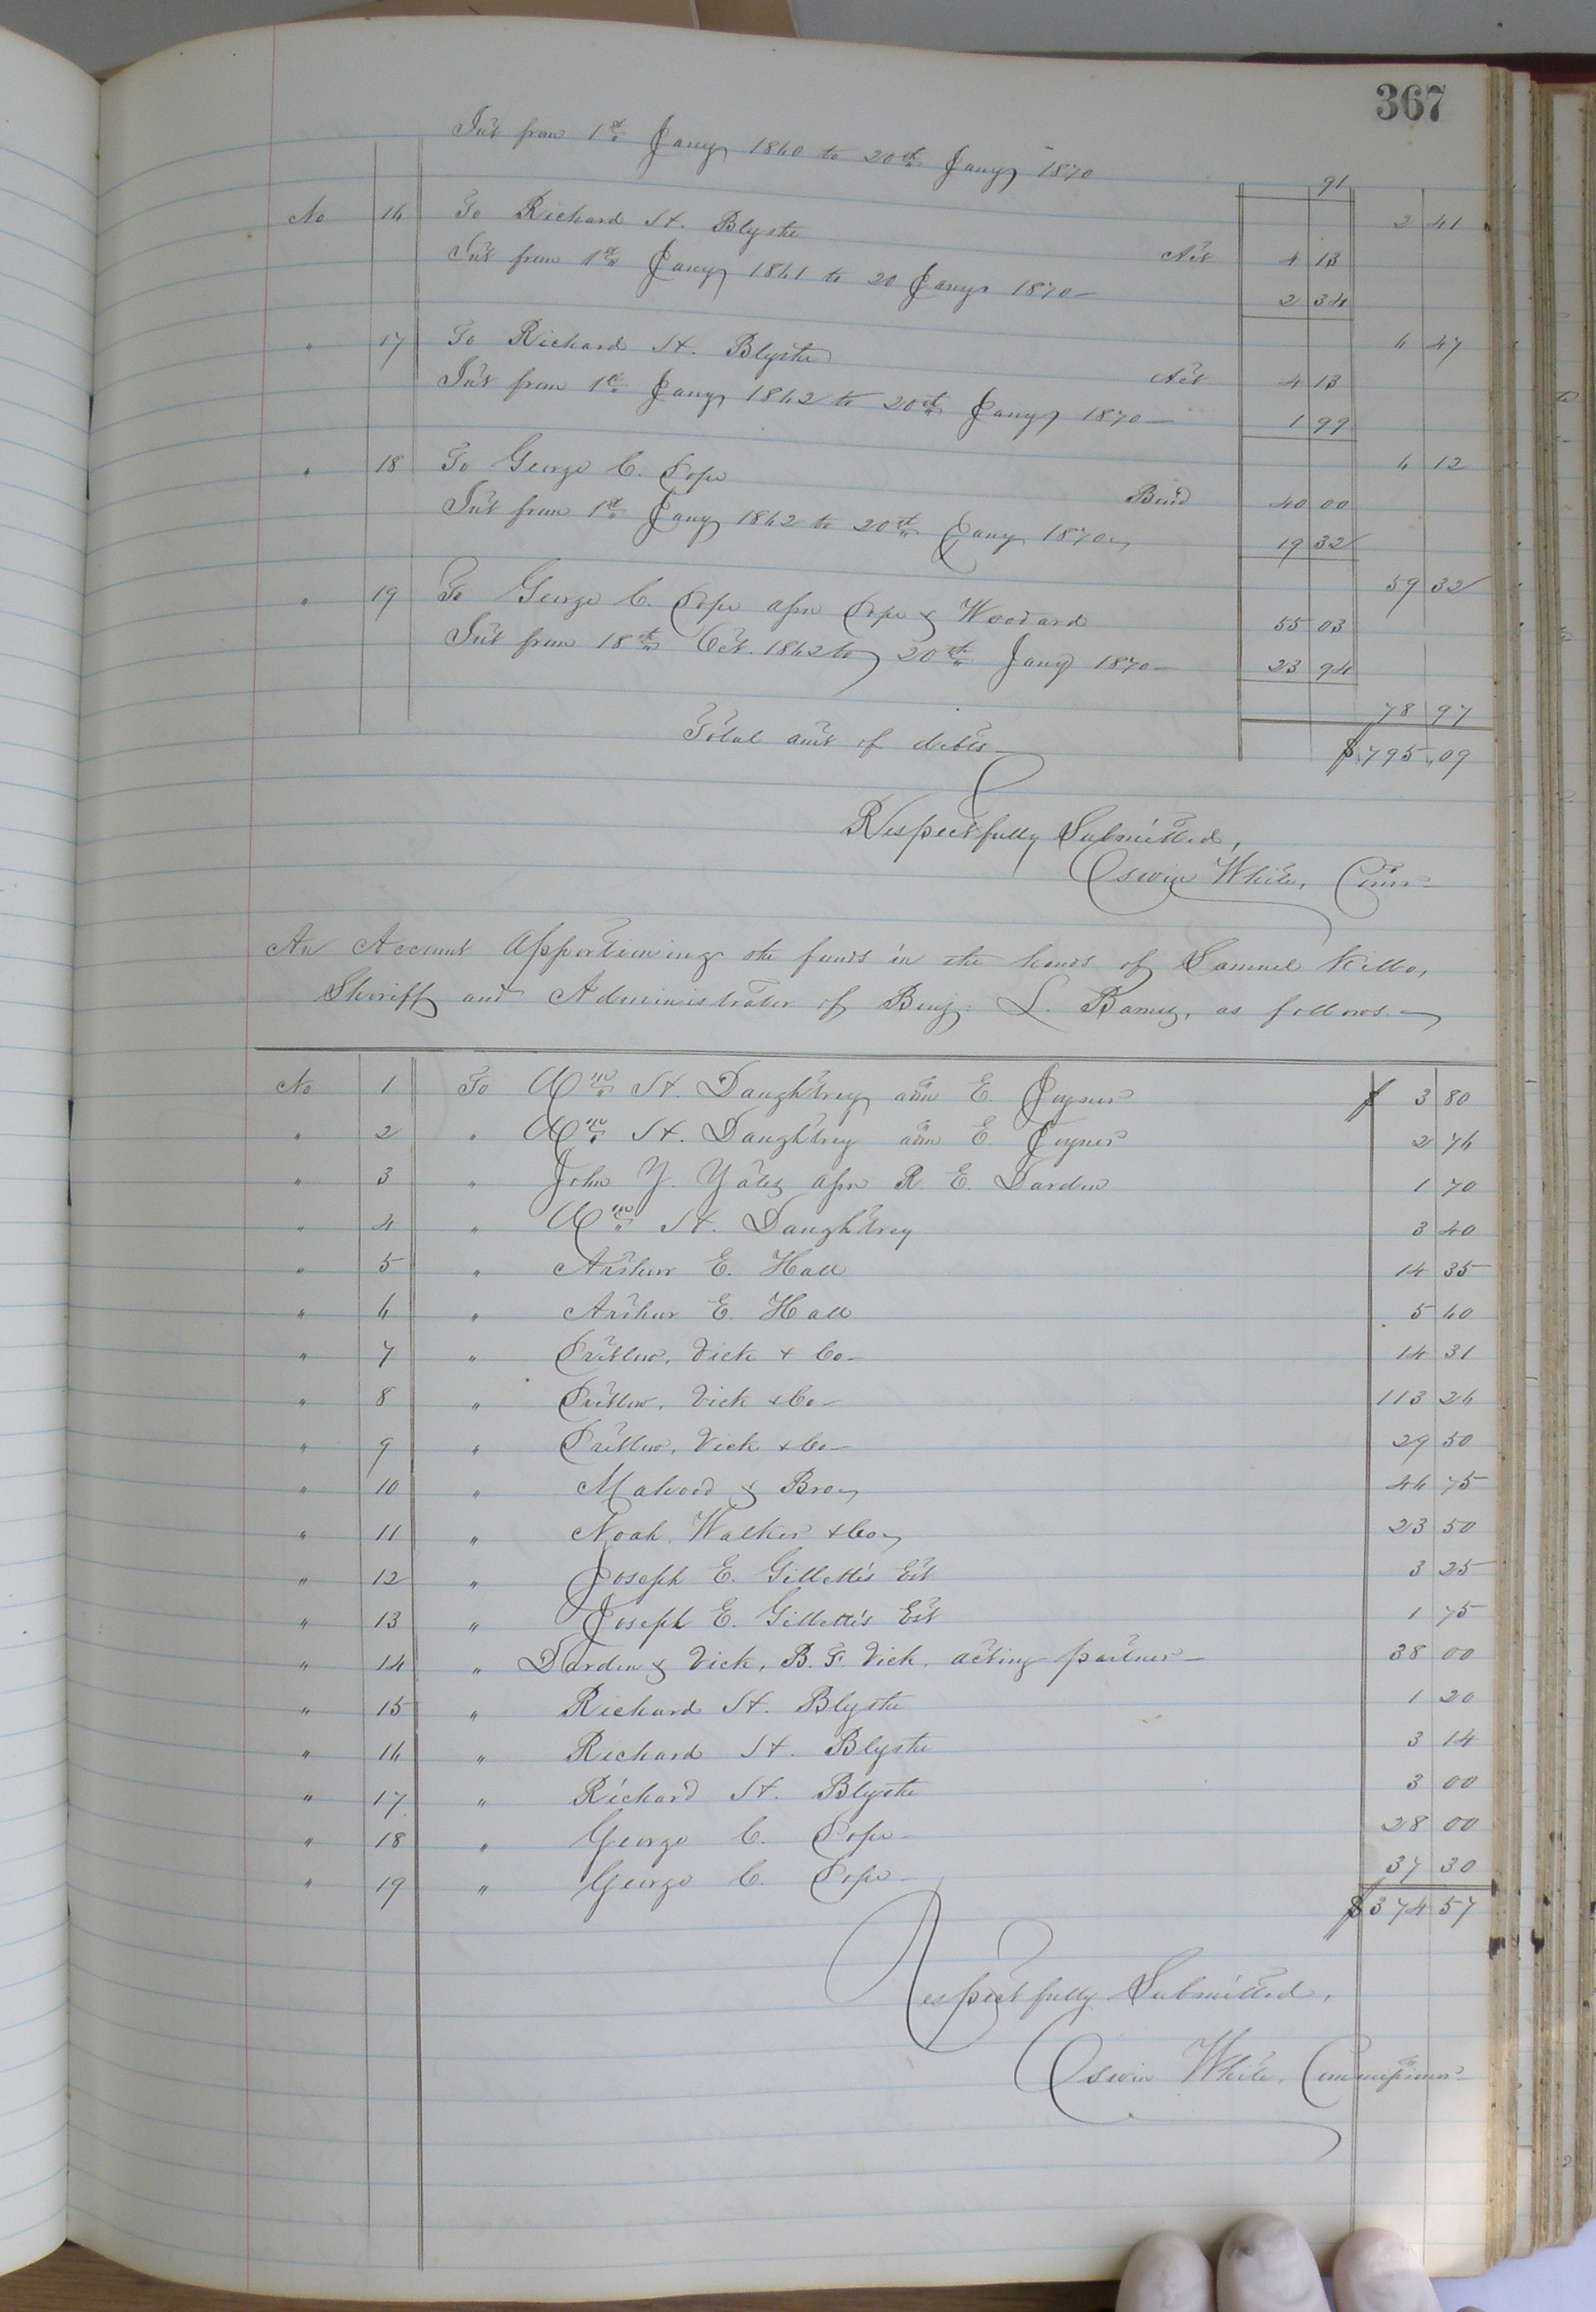 367
Int from 1st Jany 1860 to 20th Jany 1870 91
2 41
No 16 To Richard H. Blythe Act 4 13
Int from 1st Jany 1861 to 20 Jany 1870 2 34
6 47
" 17 To Richard H. Blythe Act 4 13
Int from 1st Jany 1862 to 20th Jany 1870 1 99
6 12
" 18 To George C. Pope Bond 40 00
Int from 1st Jany 1862 to 20th Jany 1870 19 32
59 32
" 19 To George C. Pope assn Pope & Woodard 55 03
Int from 18th Oct. 1862 to 20th Jany 1870 23 94
78 97
Total amt of debts $795.09
Respectfully Submitted,
Oswin White, Comr
An Account Apportioning the funds in the hands of Samuel Kello,
Sheriff and Administrator of Benj. L. Barnes, as follows
No 1 To Wm H. Daughtrey adm E. Joyner $ 3 80
" 2 " Wm H. Daughtrey adm E. Joyner 2 76
" 3 " John Y. Yates assn R. E. Darden 1 70
" 4 " Wm H. Daughtrey 3 40
" 5 " Arthur E. Hall 14 35
" 6 " Arthur E. Hall 5 60
" 7 " Pretlow, Vick & Co 14 31
" 8 " Pretlow, Vick & Co 113 26
" 9 " Pretlow, Vick & Co 29 50
" 10 " & Bro 46 75
" 11 " Noah Walker & Co 23 50
" 12 " Joseph E. Gillette's Est 3 25
" 13 " Joseph E. Gillette's Est 1 75
" 14 " Darden & Vick, B. F. Vick, acting partner 38 00
" 15 " Richard H. Blythe 1 20
" 16 " Richard H. Blythe 3 14
" 17 " Richard H. Blythe 3 00
" 18 " George C. Pope 28 00
" 19 " George C. Pope 37 30
$374 57
Respectfully Submitted,
Oswin White, Commissioner